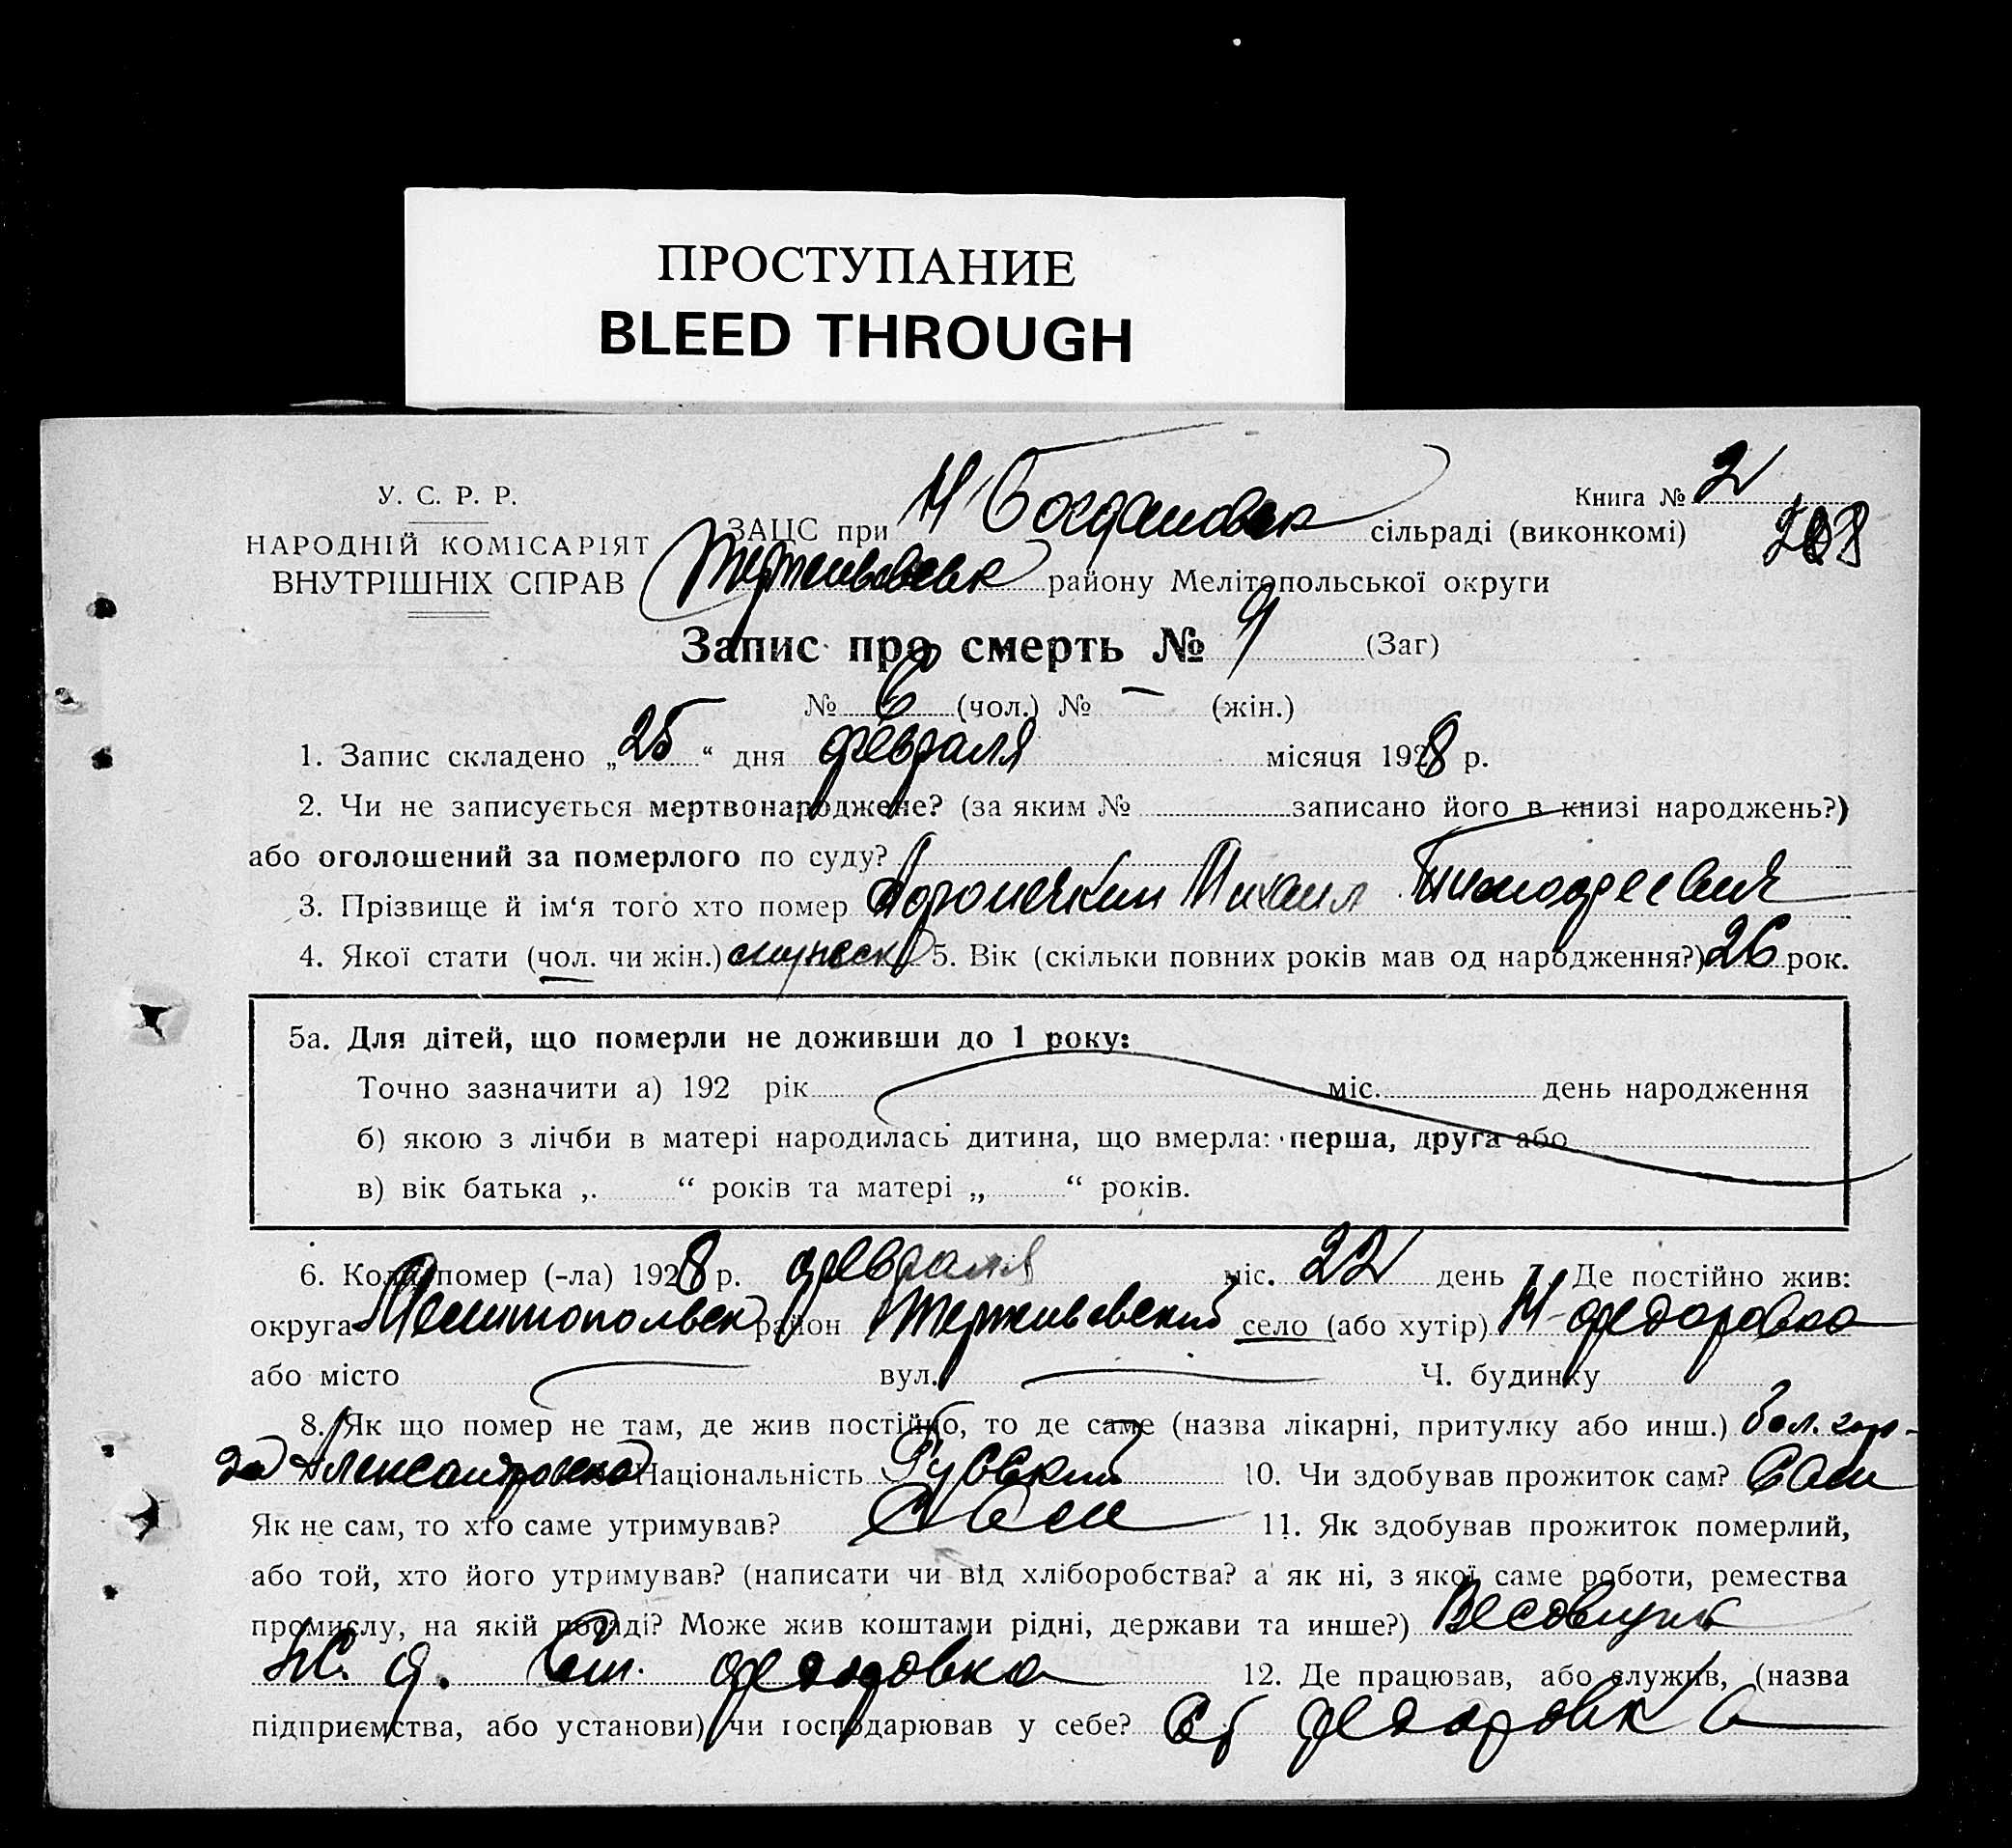 ПРОСТУПАНИЕ
BLEED THROUGH
У. С. Р. Р.
НАРОДНІЙ КОМІСАРІЯТ
ВНУТРІШНІХ СПРАВ
Книга № 2
ЗАЦС при Н Богдановск сільраді (виконкомі)
району Мелітопольської округи
Запис про смерть № 9 (Заг)
№ 6 (чол.) № — (жін.)
1. Запис складено „25“ дня февраля місяця 1928 р.
2. Чи не записується мертвонароджене? (за яким № записано його в книзі народжень?)
або оголошений за померлого по суду?
3. Прізвище й ім'я того хто помер Михаил Тимофеевич
4. Якої стати (чол. чи жін.) мужеск 5. Вік (скільки повних років мав од народження?) 26 рок.
5а. Для дітей, що померли не доживши до 1 року:
Точно зазначити а) 192 рік міс. день народження
б) якою з лічби в матері народилась дитина, що вмерла: перша, друга або
в) вік батька „ “ років та матері „ “ років.
6. Коли помер (-ла) 1928 р. февраля міс. 22 день 7. Де постійно жив:
округа Мелитопольск район село (або хутір) Н-Федоровка
або місто вул. Ч. будинку
8. Як що помер не там, де жив постійно, то де саме (назва лікарні, притулку або инш.) Бол. гор-
да Александровска Національність Русский 10. Чи здобував прожиток сам? Сам
Як не сам, то хто саме утримував? Сам 11. Як здобував прожиток померлий,
або той, хто його утримував? (написати чи від хліборобства? а як ні, з якої саме роботи, ремества
промислу, на якій посаді? Може жив коштами рідні, держави та инше?) Весовщик
ж. д. Ст. Федоровка 12. Де працював, або служив, (назва
підприємства, або установи) чи господарював у себе? Ст Федоровка